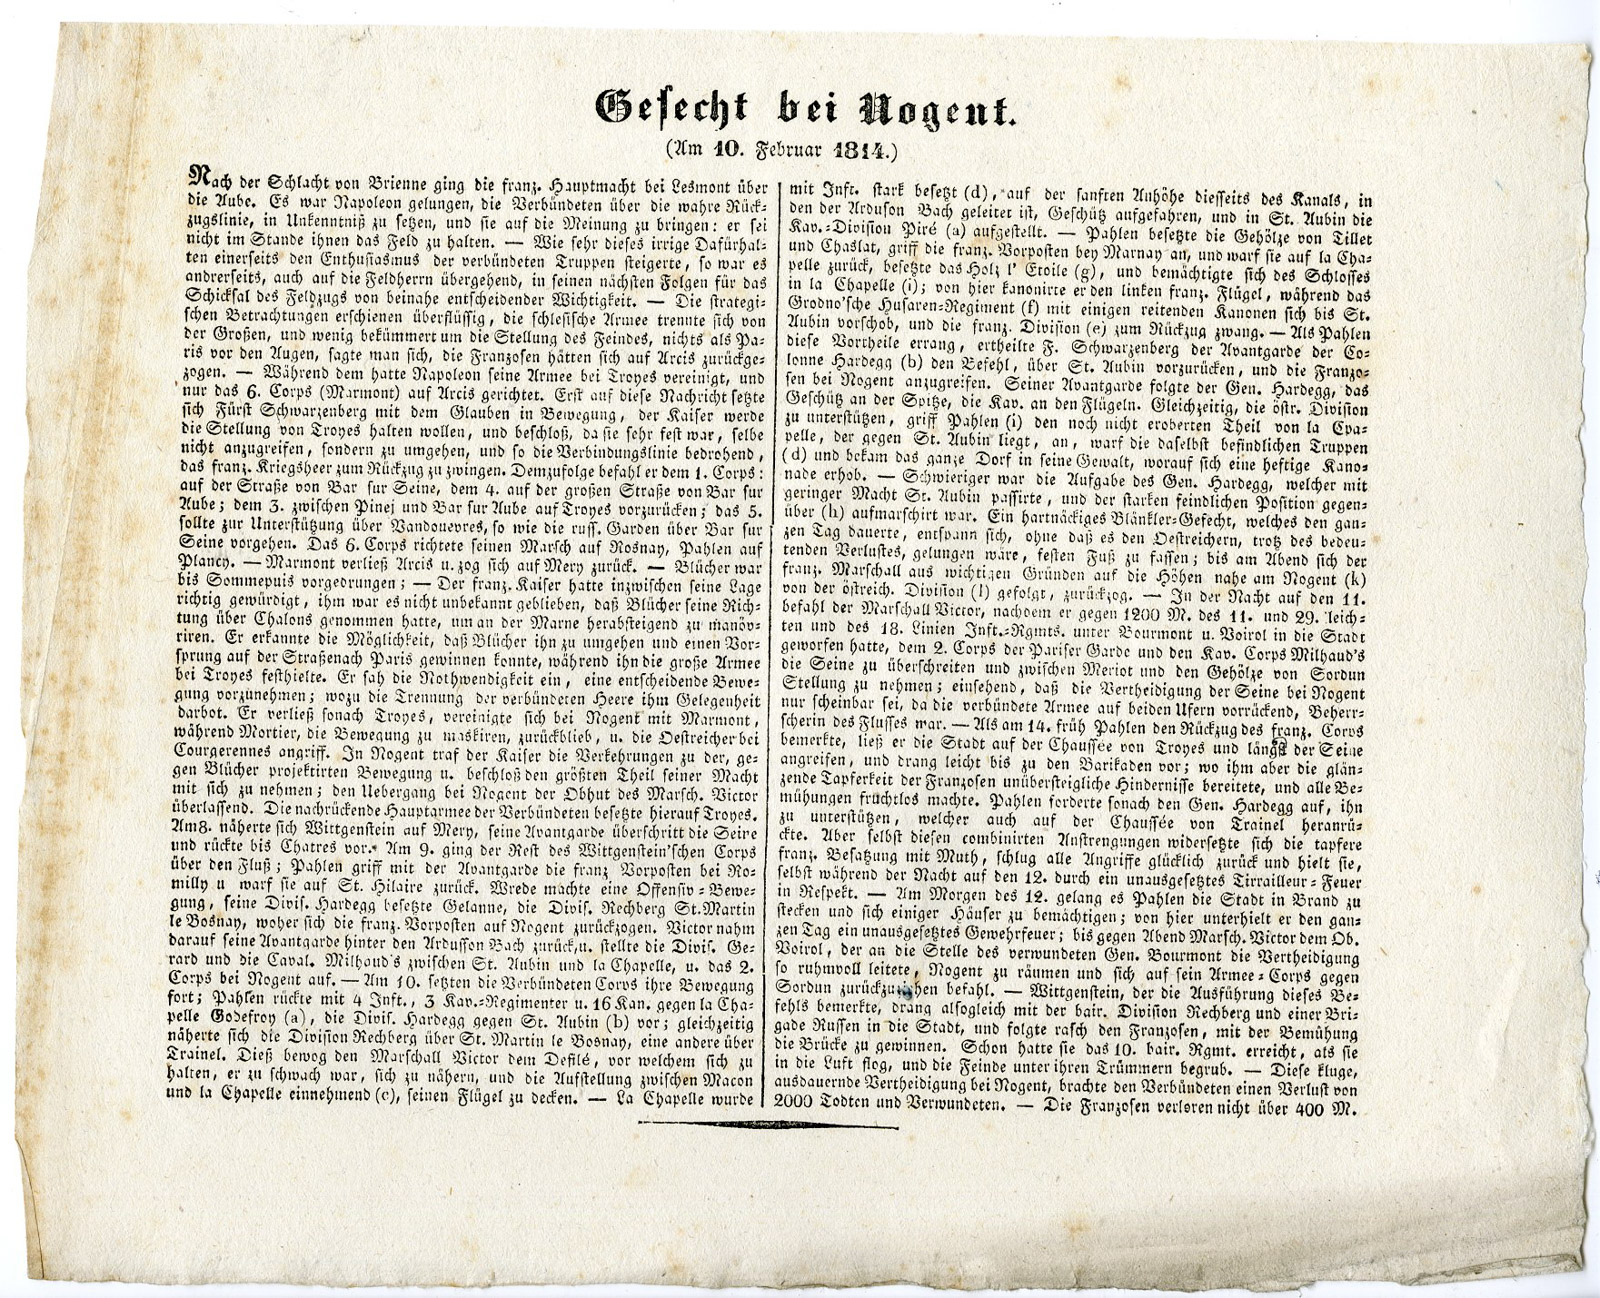 Gefecht bei Nogent.
(Am 10. Februar 1814.)
Nach der Schlacht von Brienne ging die franz. Hauptmacht bei Lesmont über
die Aube. Es war Napoleon gelungen, die Verbündeten über die wahre Rück-
zugslinie, in Unkenntniß zu setzen, und sie auf die Meinung zu bringen: er sei
nicht im Stande ihnen das Feld zu halten. — Wie sehr dieses irrige Dafürhal-
ten einerseits den Enthusiasmus der verbündeten Truppen steigerte, so war es
andrerseits, auch auf die Feldherrn übergehend, in seinen nächsten Folgen für das
Schicksal des Feldzugs von beinahe entscheidender Wichtigkeit. — Die strategi-
schen Betrachtungen erschienen überflüssig, die schlesische Armee trennte sich von
der Großen, und wenig bekümmert um die Stellung des Feindes, nichts als Pa-
ris vor den Augen, sagte man sich, die Franzosen hätten sich auf Arcis zurückge-
zogen. — Während dem hatte Napoleon seine Armee bei Troyes vereinigt, und
nur das 6. Corps (Marmont) auf Arcis gerichtet. Erst auf diese Nachricht setzte
sich Fürst Schwarzenberg mit dem Glauben in Bewegung, der Kaiser werde
die Stellung von Troyes halten wollen, und beschloß, da sie sehr fest war, selbe
nicht anzugreifen, sondern zu umgehen, und so die Verbindungslinie bedrohend,
das franz. Kriegsheer zum Rückzug zu zwingen. Demzufolge befahl er dem 1. Corps:
auf der Straße von Bar sur Seine, dem 4. auf der großen Straße von Bar sur
Aube; dem 3. zwischen Pinej und Bar sur Aube auf Troyes vorzurücken; das 5.
sollte zur Unterstützung über Vandouevres, so wie die russ. Garden über Bar sur
Seine vorgehen. Das 6. Corps richtete seinen Marsch auf Rosnay, Pahlen auf
Plancy. — Marmont verließ Arcis u. zog sich auf Mery zurück. — Blücher war
bis Sommepuis vorgedrungen; — Der franz. Kaiser hatte inzwischen seine Lage
richtig gewürdigt, ihm war es nicht unbekannt geblieben, daß Blücher seine Rich-
tung über Chalons genommen hatte, um an der Marne herabsteigend zu manöv-
riren. Er erkannte die Möglichkeit, daß Blücher ihn zu umgehen und einen Vor-
sprung auf der Straßenach Paris gewinnen konnte, während ihn die große Armee
bei Troyes festhielte. Er sah die Nothwendigkeit ein, eine entscheidende Bewe-
gung vorzunehmen; wozu die Trennung der verbündeten Heere ihm Gelegenheit
darbot. Er verließ sonach Troyes, vereinigte sich bei Nogent mit Marmont,
während Mortier, die Bewegung zu maskiren, zurückblieb, u. die Oestreicher bei
Courgerennes angriff. In Nogent traf der Kaiser die Verkehrungen zu der, ge-
gen Blücher projektirten Bewegung u. beschloß den größten Theil seiner Macht
mit sich zu nehmen; den Uebergang bei Nogent der Obhut des Marsch. Victor
überlassend. Die nachrückende Hauptarmee der Verbündeten besetzte hierauf Troyes.
Am 8. näherte sich Wittgenstein auf Mery, seine Avantgarde überschritt die Seine
und rückte bis Chatres vor. Am 9. ging der Rest des Wittgenstein'schen Corps
über den Fluß; Pahlen griff mit der Avantgarde die franz Vorposten bei Ro-
milly u warf sie auf St. Hilaire zurück. Wrede machte eine Offensiv-Bewe-
gung, seine Divis. Hardegg besetzte Gelanne, die Divis. Rechberg St. Martin
le Bosnay, woher sich die franz. Vorposten auf Nogent zurückzogen. Victor nahm
darauf seine Avantgarde hinter den Ardusson Bach zurück, u. stellte die Divis. Ge-
rard und die Caval. Milhaud's zwischen St. Aubin und la Chapelle, u. das 2.
Corps bei Nogent auf. — Am 10. setzten die Verbündeten Corps ihre Bewegung
fort; Pahlen rückte mit 4 Inft., 3 Kav.-Regimenter u. 16 Kan. gegen la Cha-
pelle Godefroy (a), die Divis. Hardegg gegen St. Aubin (b) vor; gleichzeitig
näherte sich die Division Rechberg über St. Martin le Bosnay, eine andere über
Trainel. Dieß bewog den Marschall Victor dem Defilé, vor welchem sich zu
halten, er zu schwach war, sich zu nähern, und die Aufstellung zwischen Macon
und la Chapelle einnehmend (c), seinen Flügel zu decken. — La Chapelle wurde
mit Inft. stark besetzt (d), auf der sanften Anhöhe diesseits des Kanals, in
den der Arduson Bach geleitet ist, Geschütz aufgefahren, und in St. Aubin die
Kav.-Division Piré (a) aufgestellt. — Pahlen besetzte die Gehölze von Tillet
und Chaslat, griff die franz. Vorposten bey Marnay an, und warf sie auf la Cha-
pelle zurück, besetzte das Holz l' Etoile (g), und bemächtigte sich des Schlosses
in la Chapelle (i); von hier kanonirte er den linken franz. Flügel, während das
Grodno'sche Husaren-Regiment (f) mit einigen reitenden Kanonen sich bis St.
Aubin vorschob, und die franz. Division (e) zum Rückzug zwang. — Als Pahlen
diese Vortheile errang, ertheilte F. Schwarzenberg der Avantgarde der Co-
lonne Hardegg (b) den Befehl, über St. Aubin vorzurücken, und die Franzo-
sen bei Nogent anzugreifen. Seiner Avantgarde folgte der Gen. Hardegg, das
Geschütz an der Spitze, die Kav. an den Flügeln. Gleichzeitig, die östr. Division
zu unterstützen, griff Pahlen (i) den noch nicht eroberten Theil von la Cpa-
pelle, der gegen St. Aubin liegt, an, warf die daselbst befindlichen Truppen
(d) und bekam das ganze Dorf in seine Gewalt, worauf sich eine heftige Kano-
nade erhob. — Schwieriger war die Aufgabe des Gen. Hardegg, welcher mit
geringer Macht St. Aubin passirte, und der starken feindlichen Position gegen-
über (h) aufmarschirt war. Ein hartnäckiges Blänkler-Gefecht, welches den gan-
zen Tag dauerte, entspann sich, ohne daß es den Oestreichern, trotz des bedeu-
tenden Verlustes, gelungen wäre, festen Fuß zu fassen; bis am Abend sich der
franz. Marschall aus wichtigen Gründen auf die Höhen nahe am Nogent (k)
von der östreich. Division (l) gefolgt, zurückzog. — In der Nacht auf den 11.
befahl der Marschall Victor, nachdem er gegen 1200 M. des 11. und 29. leich-
ten und des 18. Linien Inft.-Rgmts. unter Bourmont u. Voirol in die Stadt
geworfen hatte, dem 2. Corps der Pariser Garde und den Kav. Corps Milhaud's
die Seine zu überschreiten und zwischen Meriot und den Gehölze von Sordun
Stellung zu nehmen; einsehend, daß die Vertheidigung der Seine bei Nogent
nur scheinbar sei, da die verbündete Armee auf beiden Ufern vorrückend, Beherr-
scherin des Flusses war. — Als am 14. früh Pahlen den Rückzug des franz. Corps
bemerkte, ließ er die Stadt auf der Chaussée von Troyes und längst der Seine
angreifen, und drang leicht bis zu den Barikaden vor; wo ihm aber die glän-
zende Tapferkeit der Franzosen unübersteigliche Hindernisse bereitete, und alle Be-
mühungen fruchtlos machte. Pahlen forderte sonach den Gen. Hardegg auf, ihn
zu unterstützen, welcher auch auf der Chaussée von Trainel heranrü-
ckte. Aber selbst diesen combinirten Anstrengungen widersetzte sich die tapfere
franz. Besatzung mit Muth, schlug alle Angriffe glücklich zurück und hielt sie,
selbst während der Nacht auf den 12. durch ein unausgesetztes Tirrailleur-Feuer
in Respekt. — Am Morgen des 12. gelang es Pahlen die Stadt in Brand zu
stecken und sich einiger Häuser zu bemächtigen; von hier unterhielt er den gan-
zen Tag ein unausgesetztes Gewehrfeuer; bis gegen Abend Marsch. Victor dem Ob.
Voirol, der an die Stelle des verwundeten Gen. Bourmont die Vertheidigung
so ruhmvoll leitete, Nogent zu räumen und sich auf sein Armee-Corps gegen
Sordun zurückzuziehen befahl. — Wittgenstein, der die Ausführung dieses Be-
fehls bemerkte, drang alsogleich mit der bair. Division Rechberg und einer Bri-
gade Russen in die Stadt, und folgte rasch den Franzosen, mit der Bemühung
die Brücke zu gewinnen. Schon hatte sie das 10. bair. Rgmt. erreicht, als sie
in die Luft flog, und die Feinde unter ihren Trümmern begrub. — Diese kluge,
ausdauernde Vertheidigung bei Nogent, brachte den Verbündeten einen Verlust von
2000 Todten und Verwundeten. — Die Franzosen verloren nicht über 400 M.